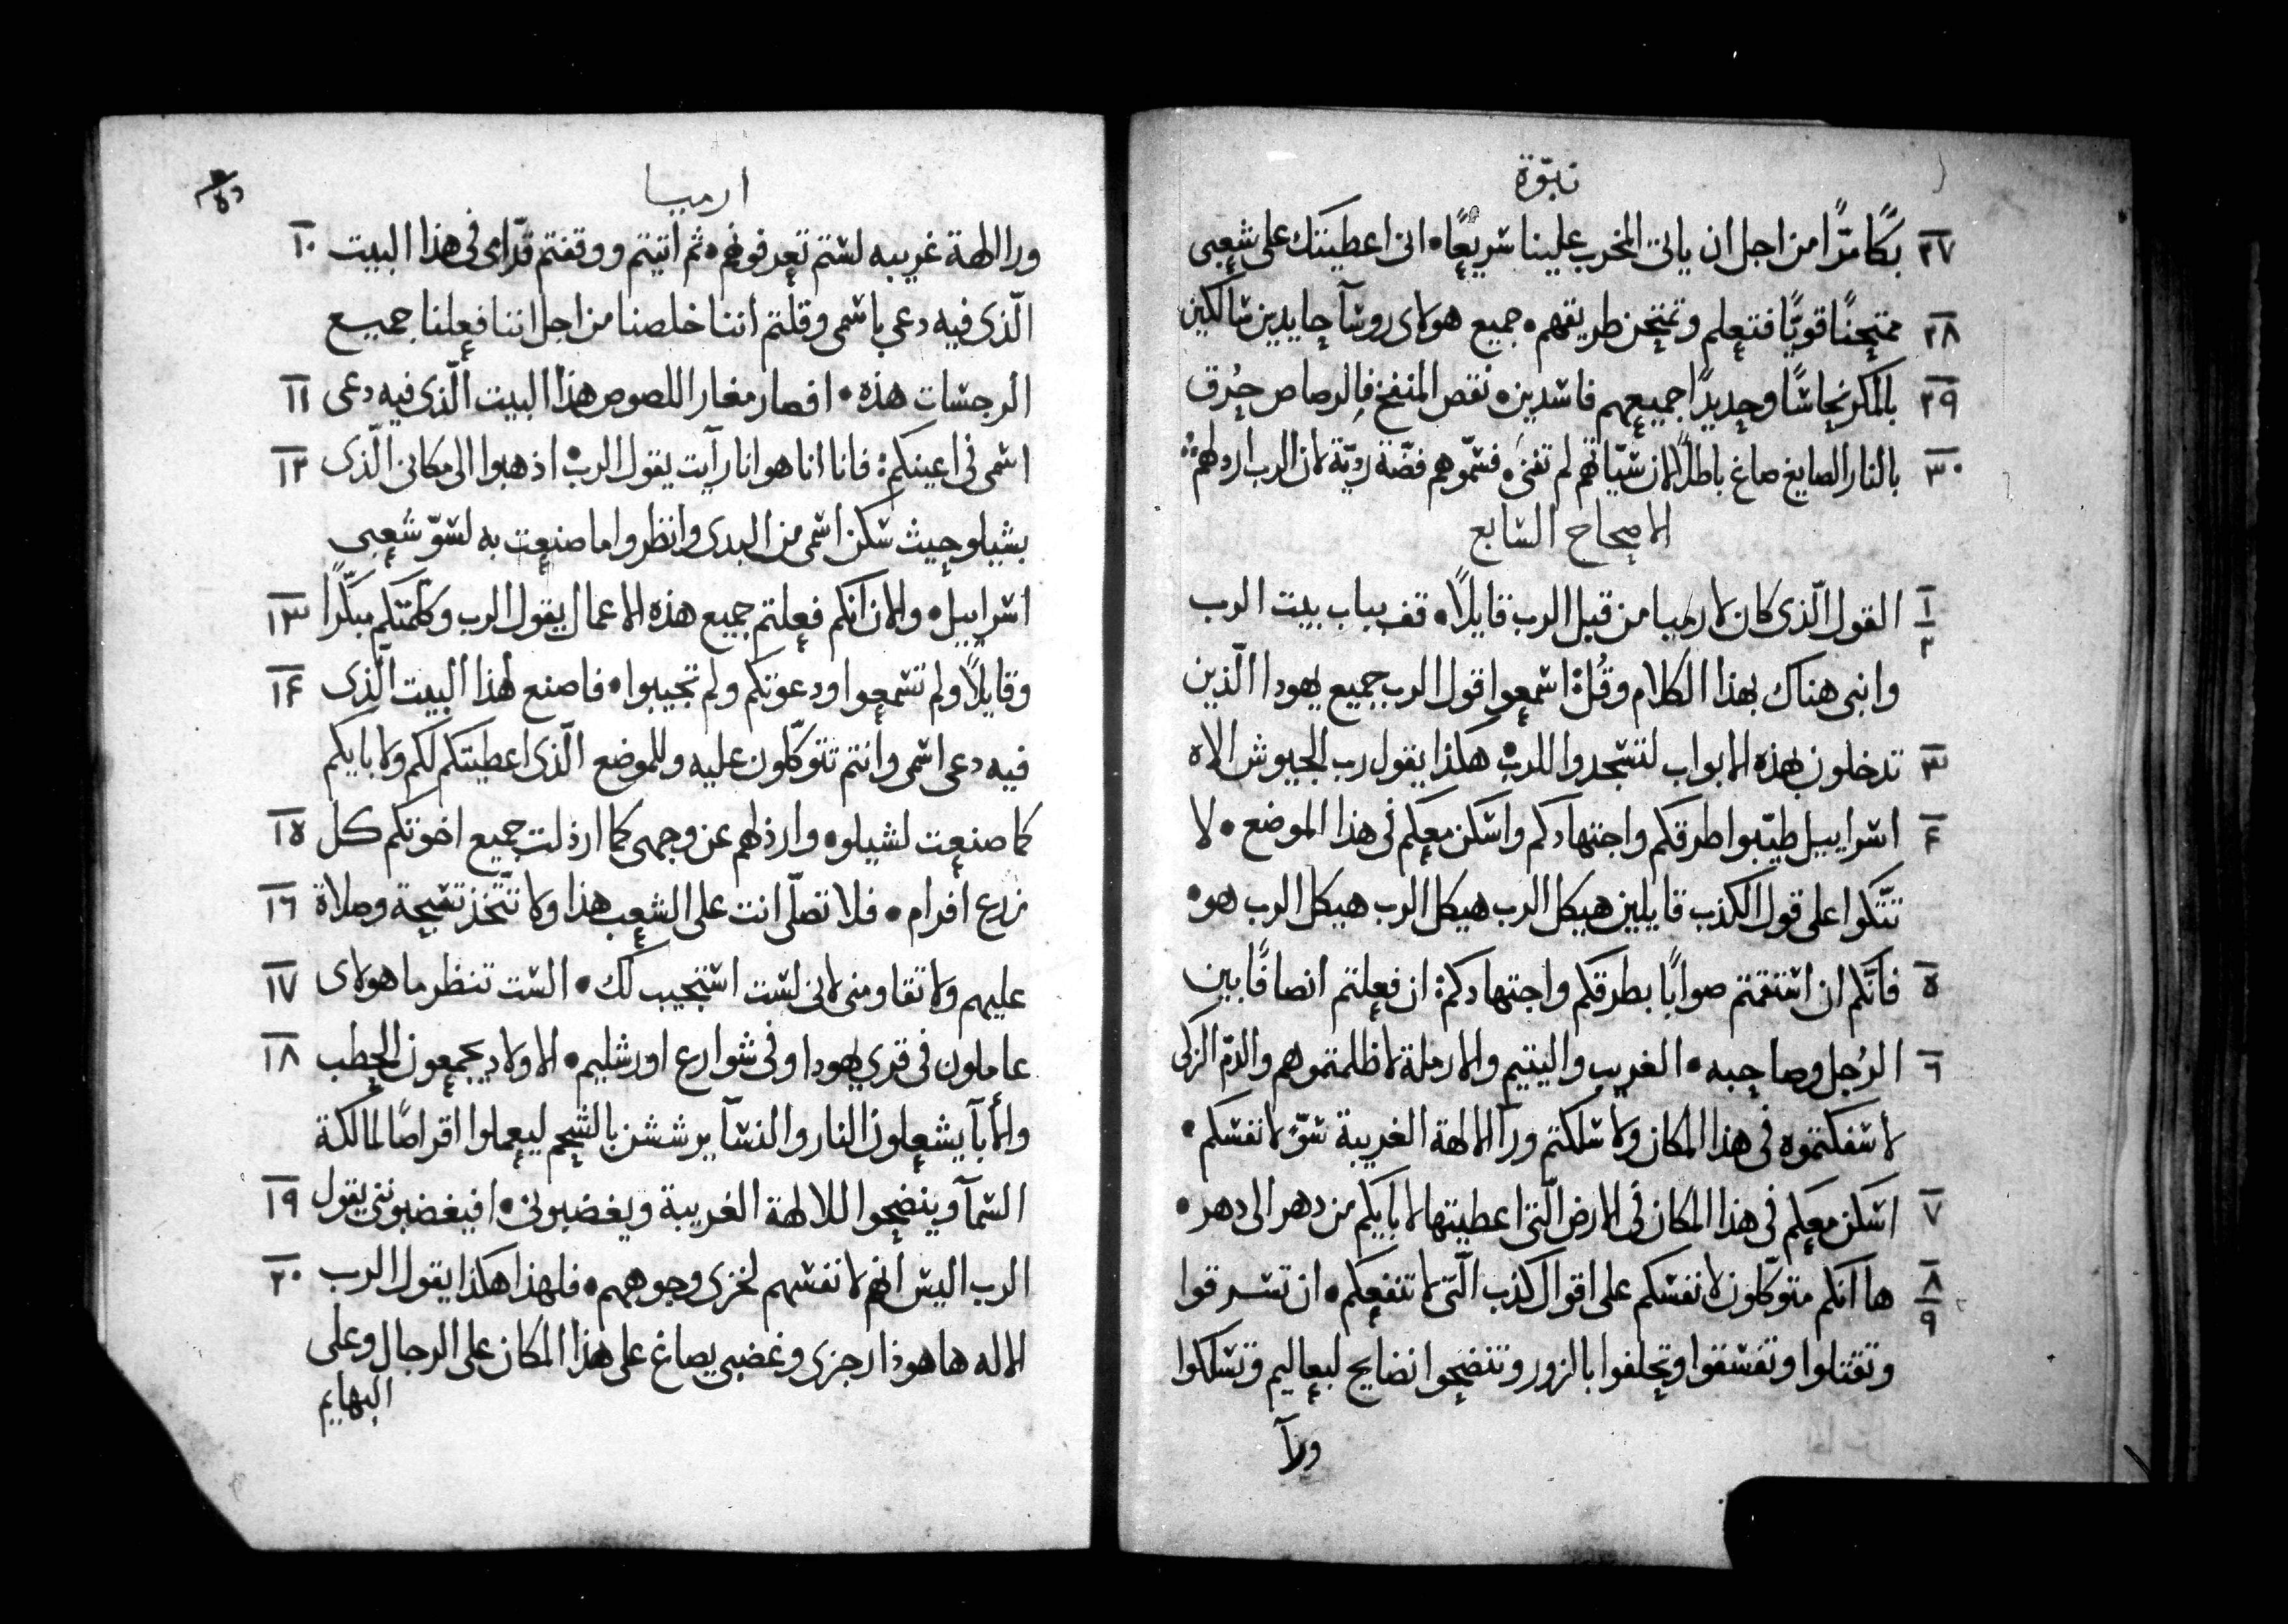 نبوّة
٢٧ بكًا مرًّا من اجل ان ياتى المخرب علينا سريعًا • انى اعطيتك على شعبى
٢٨ ممتحنًا قويًّا فتعلم وتمتحن طريقهم • جميع هولاى روسآ حايدين سالكين
٢٩ بالمكر نحاسًا وحديدًا جميعهم فاسدين • نقص المنفخ فالرصاص حرق
٣٠ بالنار الصايغ صاغ باطلًا لان سيّاتهم لم تفنى • فسمّوهم فضّة رديّة لان الرب ارذلهم
الاصحاح السابع
١ ٢ القول الّذى كان لارميا من قبل الرب قايلًا • قف بباب بيت الرب
وانبى هناك بهذا الكلام وقُل: اسمعوا قول الرب جميع يهودا الّذين
٣ تدخلون بهذه الابواب لتسجدوا للرب • هكذا يقول رب الجيوش الاه
٤ اسراييل طيّبوا طرقكم واجتهادكم واسكن معكم فى هذا الموضع • لا
تتّكوا على قول الكذب قايلين هيكل الرب هيكل الرب هيكل الرب هو •
٥ فانّكم ان استقمتم صوابًا بطرقكم واجتهادكم: ان فعلتم انصافًا بين
٦ الرُجل وصاحبه • الغريب واليتيم والارملة لا ظلمتموهم والدّم الزكى
لا سفكتموه فى هذا المكان ولا سلكتم ورآ الالهة الغريبة سوّ لانفسكم •
٧ اسكن معكم فى هذا المكان فى الارض الّتى اعطيتها لابايكم من دهر الى دهر •
٨ ٩ ها انكم متوكّلون لانفسكم على اقوال كذب الّتى لا تنفعكم • ان تسرقوا
وتقتلوا وتفسقوا وتحلفوا بالزور وتنضحوا نضايح لبعاليم وتسلكوا
ورآ
ارميا
١٠ ورا الهة غريبه لستم تعرفونهم • ثم اتيتم ووقفتم قدّامى فى هذا البيت
الّذى فيه دعى باسمى وقلتم اننا خلصنا من اجل اننا فعلنا جميع
١١ الرجسات هذه • افصار مغار اللصوص هذا البيت الّذى فيه دعى
١٢ اسمى فى اعينكم: فانا انا هو انا رآيت يقول الرب • اذهبوا الى مكانى الّذى
بشيلو حيث سكن اسمى من البدى وانظروا ما صنعت به لسوّ شعبى
١٣ اسراييل • والان انكم فعلتم جميع هذه الاعمال يقول الرب وكلّمتكم مبكّرًا
١٤ وقايلًا ولم تسمعوا ودعوتكم ولم تجيبوا • فاصنع لهذا البيت الّذى
فيه دعى اسمى وانتم تتوكّلون عليه وللموضع الّذى اعطيتكم لكم ولابايكم
١٥ كما صنعت لشيلو • وارذلهم عن وجهى كما ارذلت جميع اخوتكم كل
١٦ زرع افرام • فلا تصلّى انت على الشعب هذا ولا تتّخذ تسبحة وصلاة
١٧ عليهم ولا تقاومنى لانى لست استجيب لك • الست تنظر ما هولاى
١٨ عاملون فى قرى يهودا وفى شوارع اورشليم • الاولاد يجمعون الحطب
والأبآ يشعلون النار والنسآ يرششن بالشحم ليعملوا اقراصًا لمالكة
١٩ السمآ وينضحوا للالهة الغريبة ويغضبونى • افيغضبوننى يقول
٢٠ الرب اليس انهم لانفسهم لخزى وجوههم • فلهذا هكذا يقول الرب
الاله ها هوذا رجزى وغضبى يصاغ على هذا المكان على الرجال وعلى
البهايم